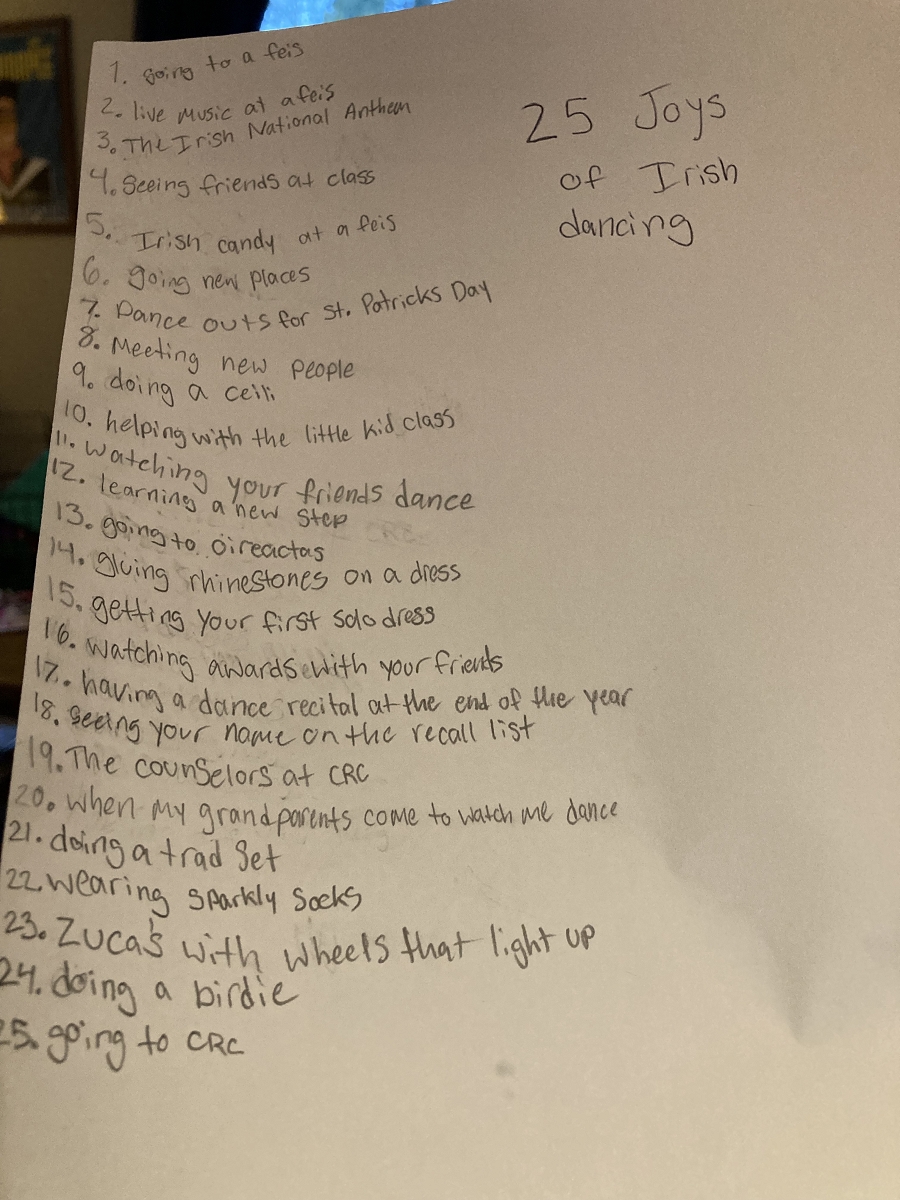 25 Joys
of Irish
dancing
1. going to a feis
2. live Music at a feis
3. The Irish National Anthem
4. Seeing friends at class
5. Irish candy at a feis
6. going new places
7. Dance outs for St. Patricks Day
8. Meeting new people
9. doing a ceili
10. helping with the little kid class
11. Watching your friends dance
12. learning a new step
13. going to oireactas
14. gluing rhinestones on a dress
15. getting your first solo dress
16. watching awards with your friends
17. having a dance recital at the end of the year
18. Seeing your name on the recall list
19. The counselors at CRC
20. when my grandparents come to watch me dance
21. doing a trad set
22. wearing sparkly socks
23. Zuca's with wheels that light up
24. doing a birdie
25. going to CRC